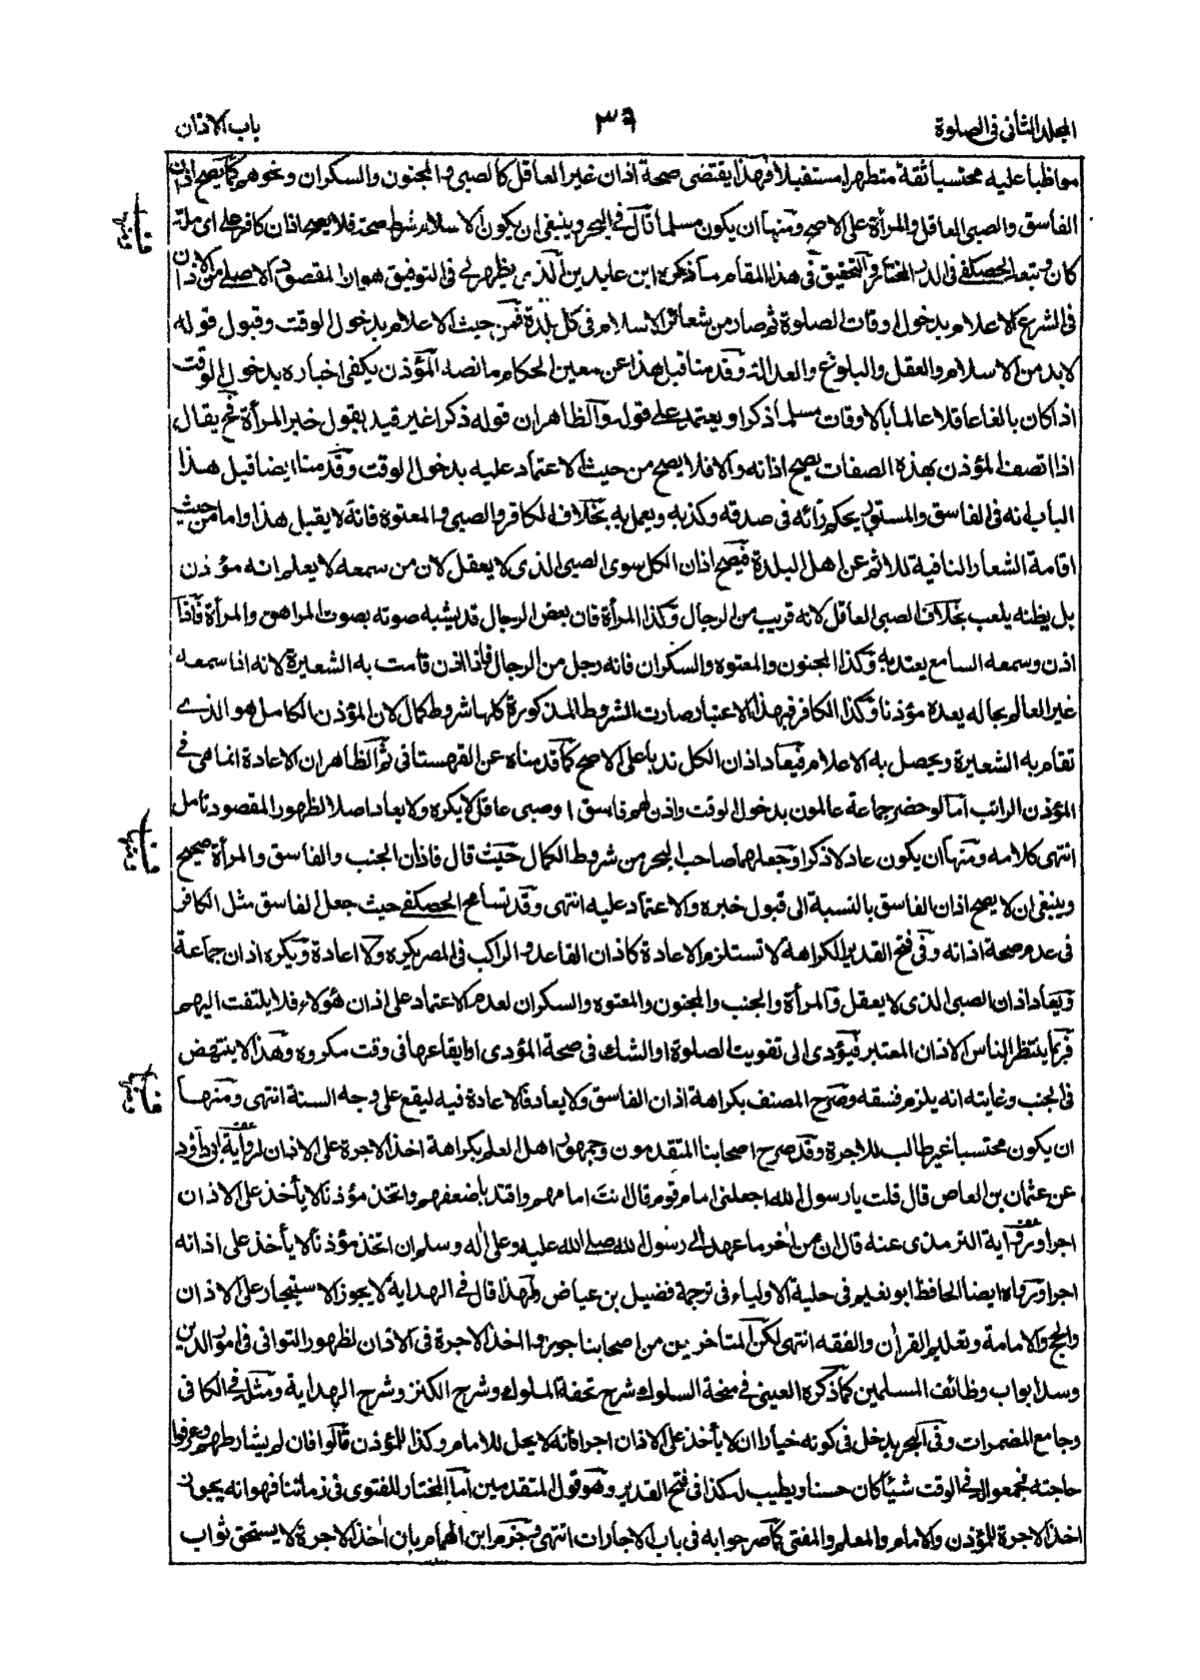 المجلد الثانی فی الصلوة
٣٦
باب الاذان
مواظبا علیه محتسبا ثقة متطهرا مستقبلا فهذا یقتضی صحة اذان غیر العاقل كالصبی والمجنون والسكران ونحوهم كما یصح اذان
الفاسق والصبی العاقل والمرأة علی الاصح ومنها ان یكون مسلما قال فی البحر وینبغی ان یكون الاسلام شرط صحته فلا یصح اذان كافر علی ای ملة
كان وتبعه الحصكفی فی الدر المختار والتحقیق فی هذا المقام ما ذكره ابن عابدین الذی یظهر لی فی التوفیق هو ان المقصود الاصلی من الاذان
فی الشرع الاعلام بدخول اوقات الصلوة ثم صار من شعائر الاسلام فی كل بلدة فمن حیث الاعلام بدخول الوقت وقبول قوله
لابد من الاسلام والعقل والبلوغ والعدالة وقد منا قبل هذا عن معین الحكام ما نصه المؤذن یكفی اخباره بدخول الوقت
اذا كان بالغا عاقلا عالما بالاوقات مسلما ذكرا ویعتمد علی قوله والظاهر ان قوله ذكرا غیر قید بقبول خبر المرأة فح یقال
اذا اتصف المؤذن بهذه الصفات یصح اذانه والا فلا یصح من حیث الاعتماد علیه بدخول الوقت وقدمنا ایضا قبل هذا
الباب انه فی الفاسق والمستور یحكم رائه فی صدقه وكذبه ویعمل به بخلاف الكافر والصبی والمعتوه فانه لا یقبل هذا واما من حیث
اقامة الشعار النافیة للاثم عن اهل البلدة فیصح اذان الكل سوی الصبی الذی لا یعقل لان من سمعه لا یعلم انه مؤذن
بل یظنه یلعب بخلاف الصبی العاقل لانه قریب من الرجال وكذا المرأة فان بعض الرجال قد یشبه صوته بصوت المراهق والمرأة فاذا
اذن وسمعه السامع یعتد به وكذا المجنون والمعتوه والسكران فانه رجل من الرجال فاذا اذن قامت به الشعیرة لانه اذا سمعه
غیر العالم بحاله یعده مؤذنا وكذا الكافر فبهذا الاعتبار صارت الشروط المذكورة كلها شروط كمال لان المؤذن الكامل هو الذی
تقام به الشعیرة ویحصل به الاعلام فیعاد اذان الكل ندبا علی الاصح كما قدمناه عن القهستانی ثم الظاهر ان الاعادة انما هی فی
المؤذن الراتب اما لو حضر جماعة عالمون بدخول الوقت واذن لهم فاسق او صبی عاقل لا یكره ولا یعاد اصلا لظهور المقصود تامل
انتهی كلامه ومنها ان یكون عادلا ذكرا وجعلهما صاحب البحر من شروط الكمال حیث قال فاذان الجنب والفاسق والمرأة صحیح
وینبغی ان لا یصح اذان الفاسق بالنسبة الی قبول خبره والاعتماد علیه انتهی وقد تسامح الحصكفی حیث جعل الفاسق مثل الكافر
فی عدم صحة اذانه وفی فتح القدیر الكراهة لا تستلزم الاعادة كاذان القاعد والراكب فی المصر یكره ولا اعادة ویكره اذان جماعة
ویعاد اذان الصبی الذی لا یعقل والمرأة والجنب والمجنون والمعتوه والسكران لعدم الاعتماد علی اذان هؤلاء فلا یلتفت الیهم
فربما ینتظر الناس الاذان المعتبر فیؤدی الی تفویت الصلوة او الشك فی صحة المؤدی او ایقاعها فی وقت مكروه وهذا لا ینتهض
فی الجنب وغایته انه یلزم فسقه وصرح المصنف بكراهة اذان الفاسق ولا یعاد فالاعادة فیه لیقع علی وجه السنة انتهی ومنها
ان یكون محتسبا غیر طالب للاجرة وقد صرح اصحابنا المتقدمون وجمهور اهل العلم بكراهة اخذ الاجرة علی الاذان لروایة ابی داؤد
عن عثمان بن العاص قال قلت یا رسول الله اجعلنی امام قوم قال انت امامهم واقتد باضعفهم واتخذ مؤذنا لا یأخذ علی الاذان
اجرا وروایة الترمذی عنه قال ان من اخر ما عهد الی رسول الله صلی الله علیه وعلی اله وسلم ان اتخذ مؤذنا لا یأخذ علی اذانه
اجرا ورواه ایضا الحافظ ابو نعیم فی حلیة الاولیاء فی ترجمة فضیل بن عیاض ولهذا قال فی الهدایة لا یجوز الاستیجار علی الاذان
والحج والامامة وتعلیم القران والفقه انتهی لكن المتاخرین من اصحابنا جوزوا اخذ الاجرة فی الاذان لظهور التوانی فی امور الدین
وسد ابواب وظائف المسلمین كما ذكره العینی فی منحة السلوك شرح تحفة الملوك وشرح الكنز وشرح الهدایة ومثله فی الكافی
وجامع المضمرات وفی البحر یدخل فی كونه خیارا ان لا یأخذ علی الاذان اجرا فانه لا یحل للامام وكذا للمؤذن قالوا فان لم یشارطهم وعرفوا
حاجته فجمعوا له فی الوقت شیئا كان حسنا ویطیب له كذا فی فتح القدیر وهو قول المتقدمین اما المختار للفتوی فی زماننا فهو انه یجوز
اخذ الاجرة للمؤذن والامام والمعلم والمفتی كما صرحوا به فی باب الاجارات انتهی وجزم ابن الهمام بان اخذ الاجرة لا یستحق ثواب